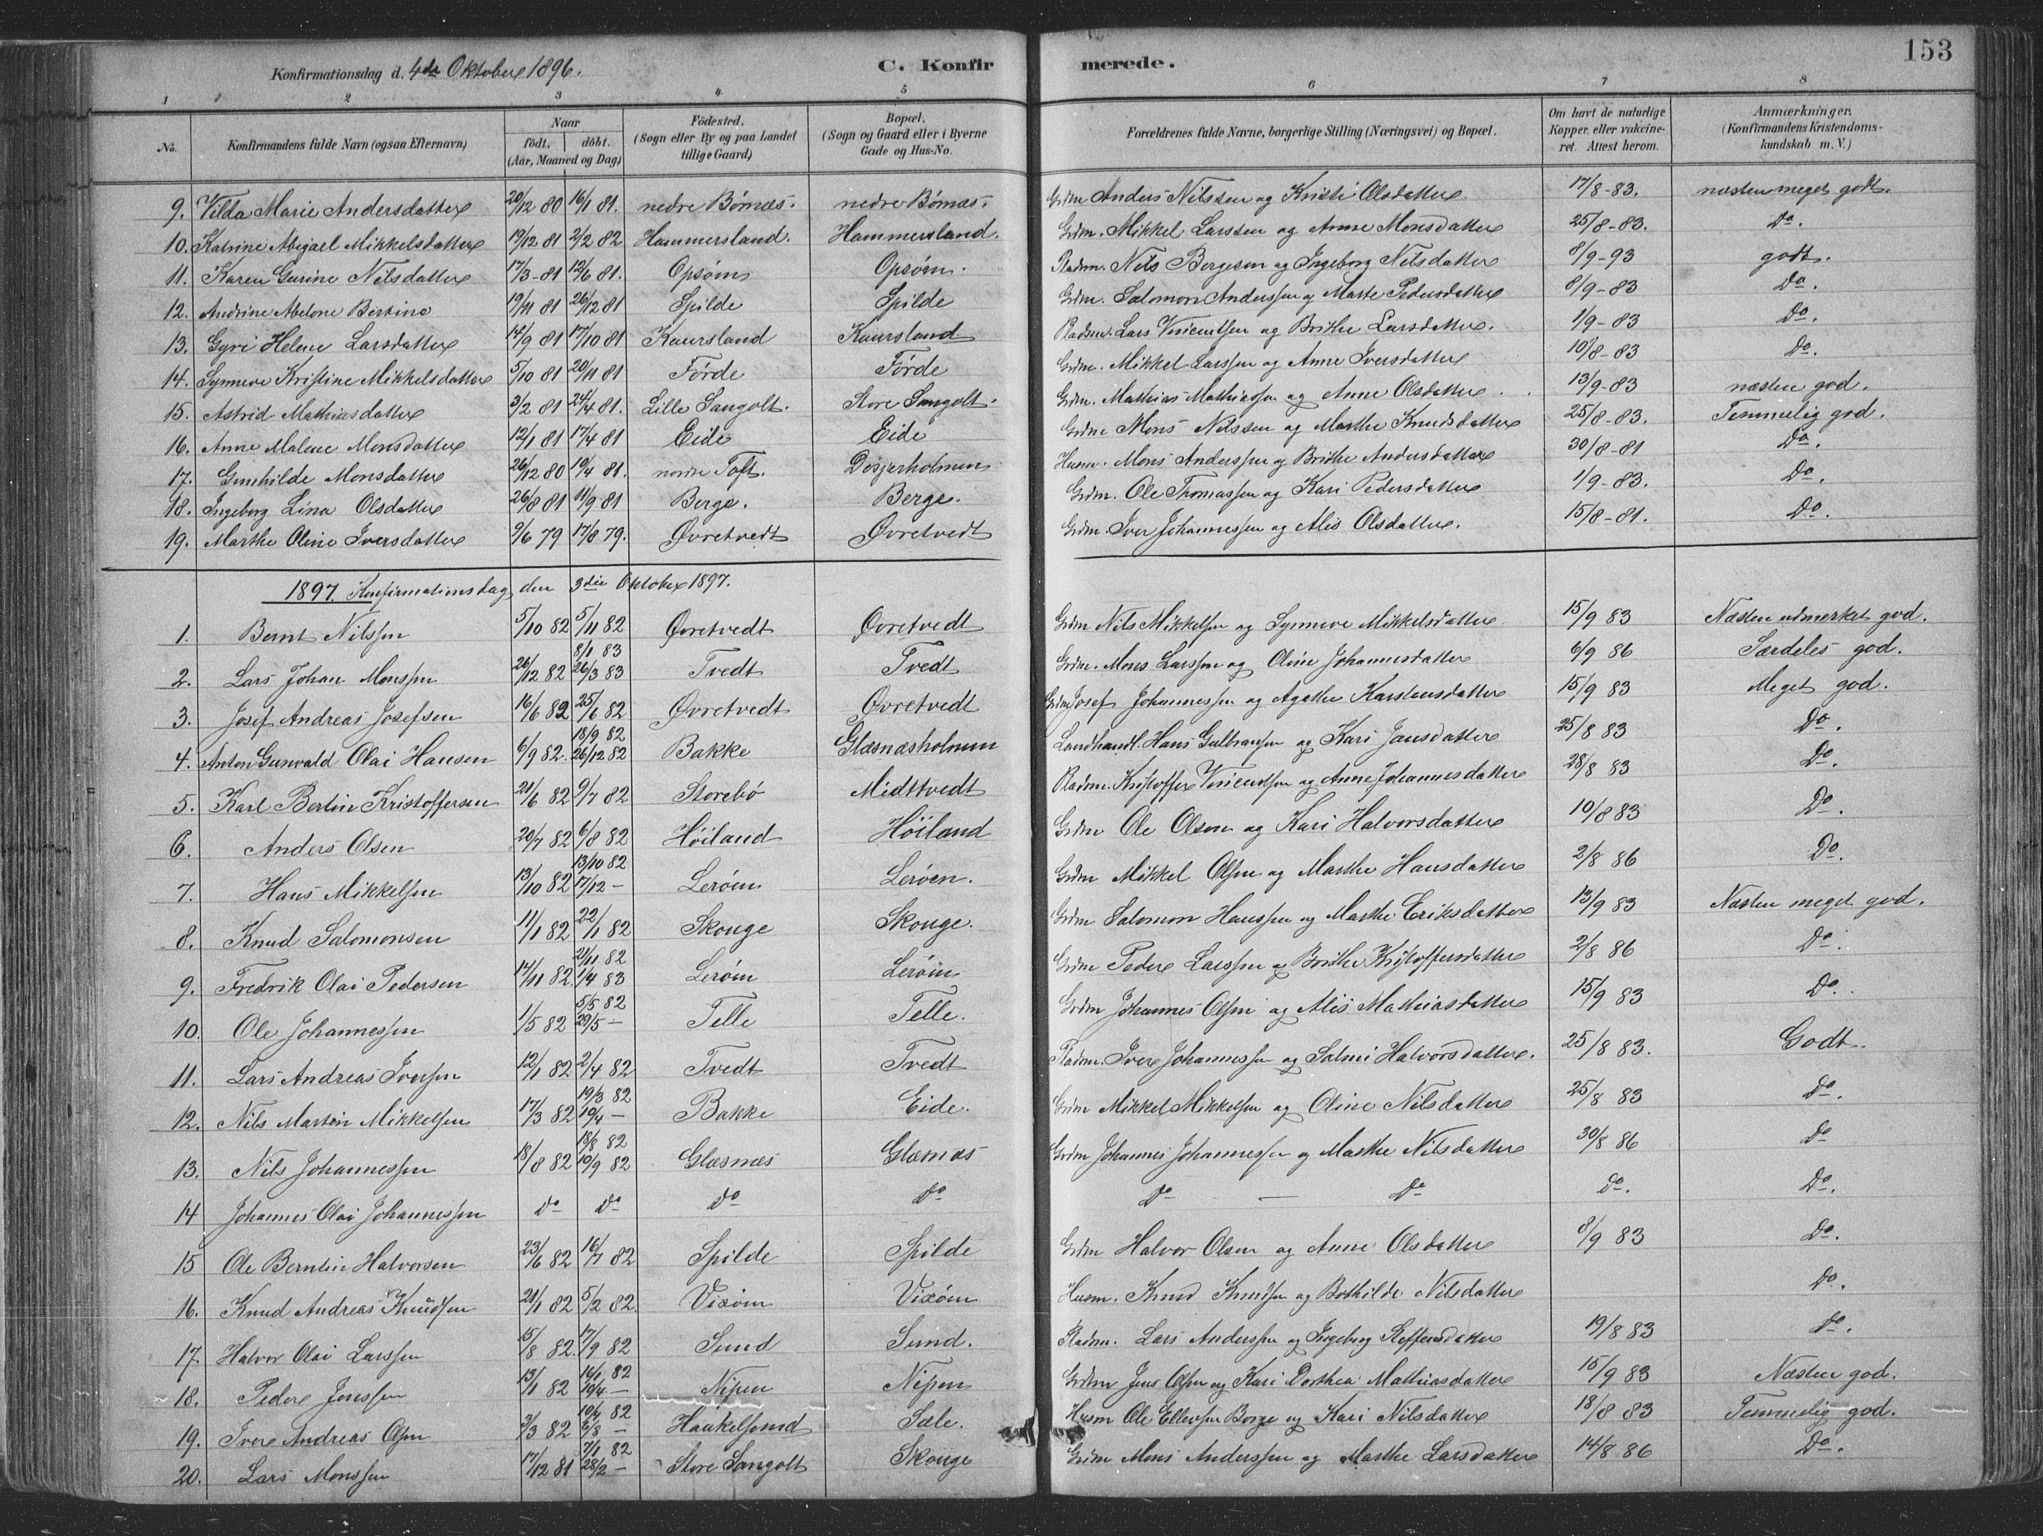 Konfirmationsdag d. 4de Oktober 1896. C. Konfirmerede. 153
1 2 3 4 5 6 7 8
No. Konfirmandens fulde Navn (ogsaa Efternavn) Naar født, døbt. (Aar, Maaned og Dag) Fødested. (Sogn eller By og paa Landet tillige Gaard) Bopæl. (Sogn og Gaard eller i Byerne Gade og Hus-No. Forældrenes fulde Navne, borgerlige Stilling (Næringsvei) og Bopæl. Om havt de naturlige Kopper, eller vakcineret. Attest herom. Anmærkninger. (Konfirmandens Kristendomskundskab m. V.)
9. Vilda Marie Andersdatter 20/12 80 16/1 81. nedre Børnæs. nedre Børnæs. Grdm Anders Nilssen og Kristi Olsdatter 17/8-83. næsten meget godt.
10. Katrine Abigael Mikkelsdatter 19/12 81 2/2 82 Hammersland. Hammersland. Grdm. Mikkel Larssen og Anne Monsdatter 25/8-83. Do.
11. Karen Gurine Nilsdatter 17/3-81 12/6 81. Opsøm Opsøm. Pladsm. Nils Børgesen og Ingeborg Nilsdatter 8/9-93 godt.
12. Andrine Abelone Bertine 19/11 81 26/12 81 Spilde Spilde Grdm. Salomon Anderssen og Marte Pedersdatter 8/9-83 Do.
13. Gyri Helene Larsdatter 14/9 81 17/10 81 Kaursland Kaursland Pladsm. Lars Vincentsen og Brithe Larsdatter. 1/9-83 Do.
14. Synneve Kristine Mikkelsdatter 5/10 81 20/11 81 Førde Førde Grdm. Mikkel Larssen og Anne Iversdatter 10/8-83 Do.
15. Astrid Mathiasdatter 3/2 81 24/4 81. Lille Sangolt. Store Sangolt. Grdm. Mathias Mathiassen og Anne Olsdatter 13/9-83 næsten god.
16. Anne Malene Monsdatter 12/1 81 17/4 81 Eide Eide Grdm Mons Nilssen og Marthe Knudsdatter 25/8-83. Temmelig god.
17. Gunhilde Monsdatter 26/12 80 19/4 81. nordre Toft. Døsjerholmen Husm. Mons Anderssen og Brithe Andersdatter 30/8-81 Do.
18. Ingeborg Lina Olsdatter 26/8 81 11/9 81 Berge. Berge. Grdm. Ole Thomassen og Kari Pedersdatter 1/9-83. Do.
19. Marthe Oline Iversdatter 9/6 79 17/8 79. Øvretvedt Øvretvedt Grdm. Iver Johannessen og Alis Olsdatter. 15/8-81. Do.
1897. Konfirmationsdag den 3die Oktober 1897.
1. Bernt Nilssen 5/10 82 5/11 82 Øvretvedt Øvretvedt Grdm Nils Mikkelsen og Synneve Mikkelsdatter 15/9 83 Næsten udmerket god.
2. Lars Johan Monssen 26/12 82 8/1 83 26/3 83 Tvedt Tvedt Grdm. Mons Larssen og Oline Johannesdatter 6/9 86 Særdeles god.
3. Josef Andreas Josefsen 16/6 82 25/6 82 Øvretvedt Øvretvedt Grdm Josef Johannessen og Agathe Karstensdatter 15/9 83 Meget god.
4. Anton Gunvald Olai Hansen 6/9 82. 18/9 82 26/12 82 Bakke Glæsnæsholmen Landhandl. Hans Gulbransen og Kari Jansdatter 25/8 83 Do.
5. Karl Bertin Kristoffersen 21/6 82 9/7 82 Storebø Midttvedt Pladsm. Kristoffer Vincentsen og Anne Johannesdatter 28/8 83 Do.
6. Anders Olsen 20/7 82 6/8 82 Høiland Høiland Grdm Ole Olsen og Kari Halvorsdatter 10/8 83 Do.
7. Hans Mikkelsen 13/10 82 13/10 82 17/12 - Lerøen Lerøen. Grdm Mikkel Olsen og Marthe Hansdatter 2/8 86 Do.
8. Knud Salomonsen 11/1 82 22/1 82 Skouge Skouge. Grdm Salomon Hanssen og Marthe Eriksdatter 13/9 83 Næsten meget god.
9. Fredrik Olai Pedersen 14/11 82 21/11 82 1/4 83 Lerøen Lerøen Grdm Peder Larssen og Brithe Kristoffersdatter 2/8 86 Do.
10. Ole Johannessen 1/5 82 5/5 82 29/5 - Telle Telle. Grdm Johannes Olsen og Alis Mathiasdatter 15/9 83 Do.
11. Lars Andreas Iversen 12/1 82 2/4 82 Tvedt Tvedt Pladsm. Iver Johannessen og Salmi Halvorsdatter. 25/8 83. Godt
12. Nils Martin Mikkelsen 17/3 82 19/3 82 10/4 - Bakke Eide. Grdm Mikkel Mikkelsen og Oline Nilsdatter 25/8 83 Do
13. Nils Johannessen 18/8 82 18/8 82 10/9 82 Glæsnæs Glæsnæs Grdm Johannes Johannessen og Marthe Nilsdatter 30/8 86 Do
14 Johannes Olai Johannessen Do Do Do Do Do — Do do. Do.
15 Ole Berntin Halvorsen 23/6 82 16/7 82 Spilde Spilde Grdm Halvor Olsen og Anne Olsdatter 8/9 83 Do.
16. Knud Andreas Knudsen 21/1 82 5/2 82. Vixøm Vixøm Husm. Knud Knudsen og Bothilde Nilsdatter Do
17. Halvor Olai Larssen 15/8 82. 17/9 82 Sund Sund. Pladsm. Lars Anderssen og Ingeborg Steffensdatter 19/8 83 Do.
18. Peder Jenssen 13/1 82 16/1 82 10/4 - Nipen Nipen Grdm Jens Olsen og Kari Dorthea Mathiasdatter 15/9 83 Næsten god.
19. Iver Andreas Olsen 3/3 82 6/8 - Haakelsund Sæle. Husm Ole Ellevsen Borge og Kari Nilsdatter 18/8 83 Temmelig god.
20. Lars Monssen 17/12 81 7/1 82 28/2 - Store Sangolt Skouge Grdm Mons Anderssen og Marthe Larsdatter 14/8 86 Do.